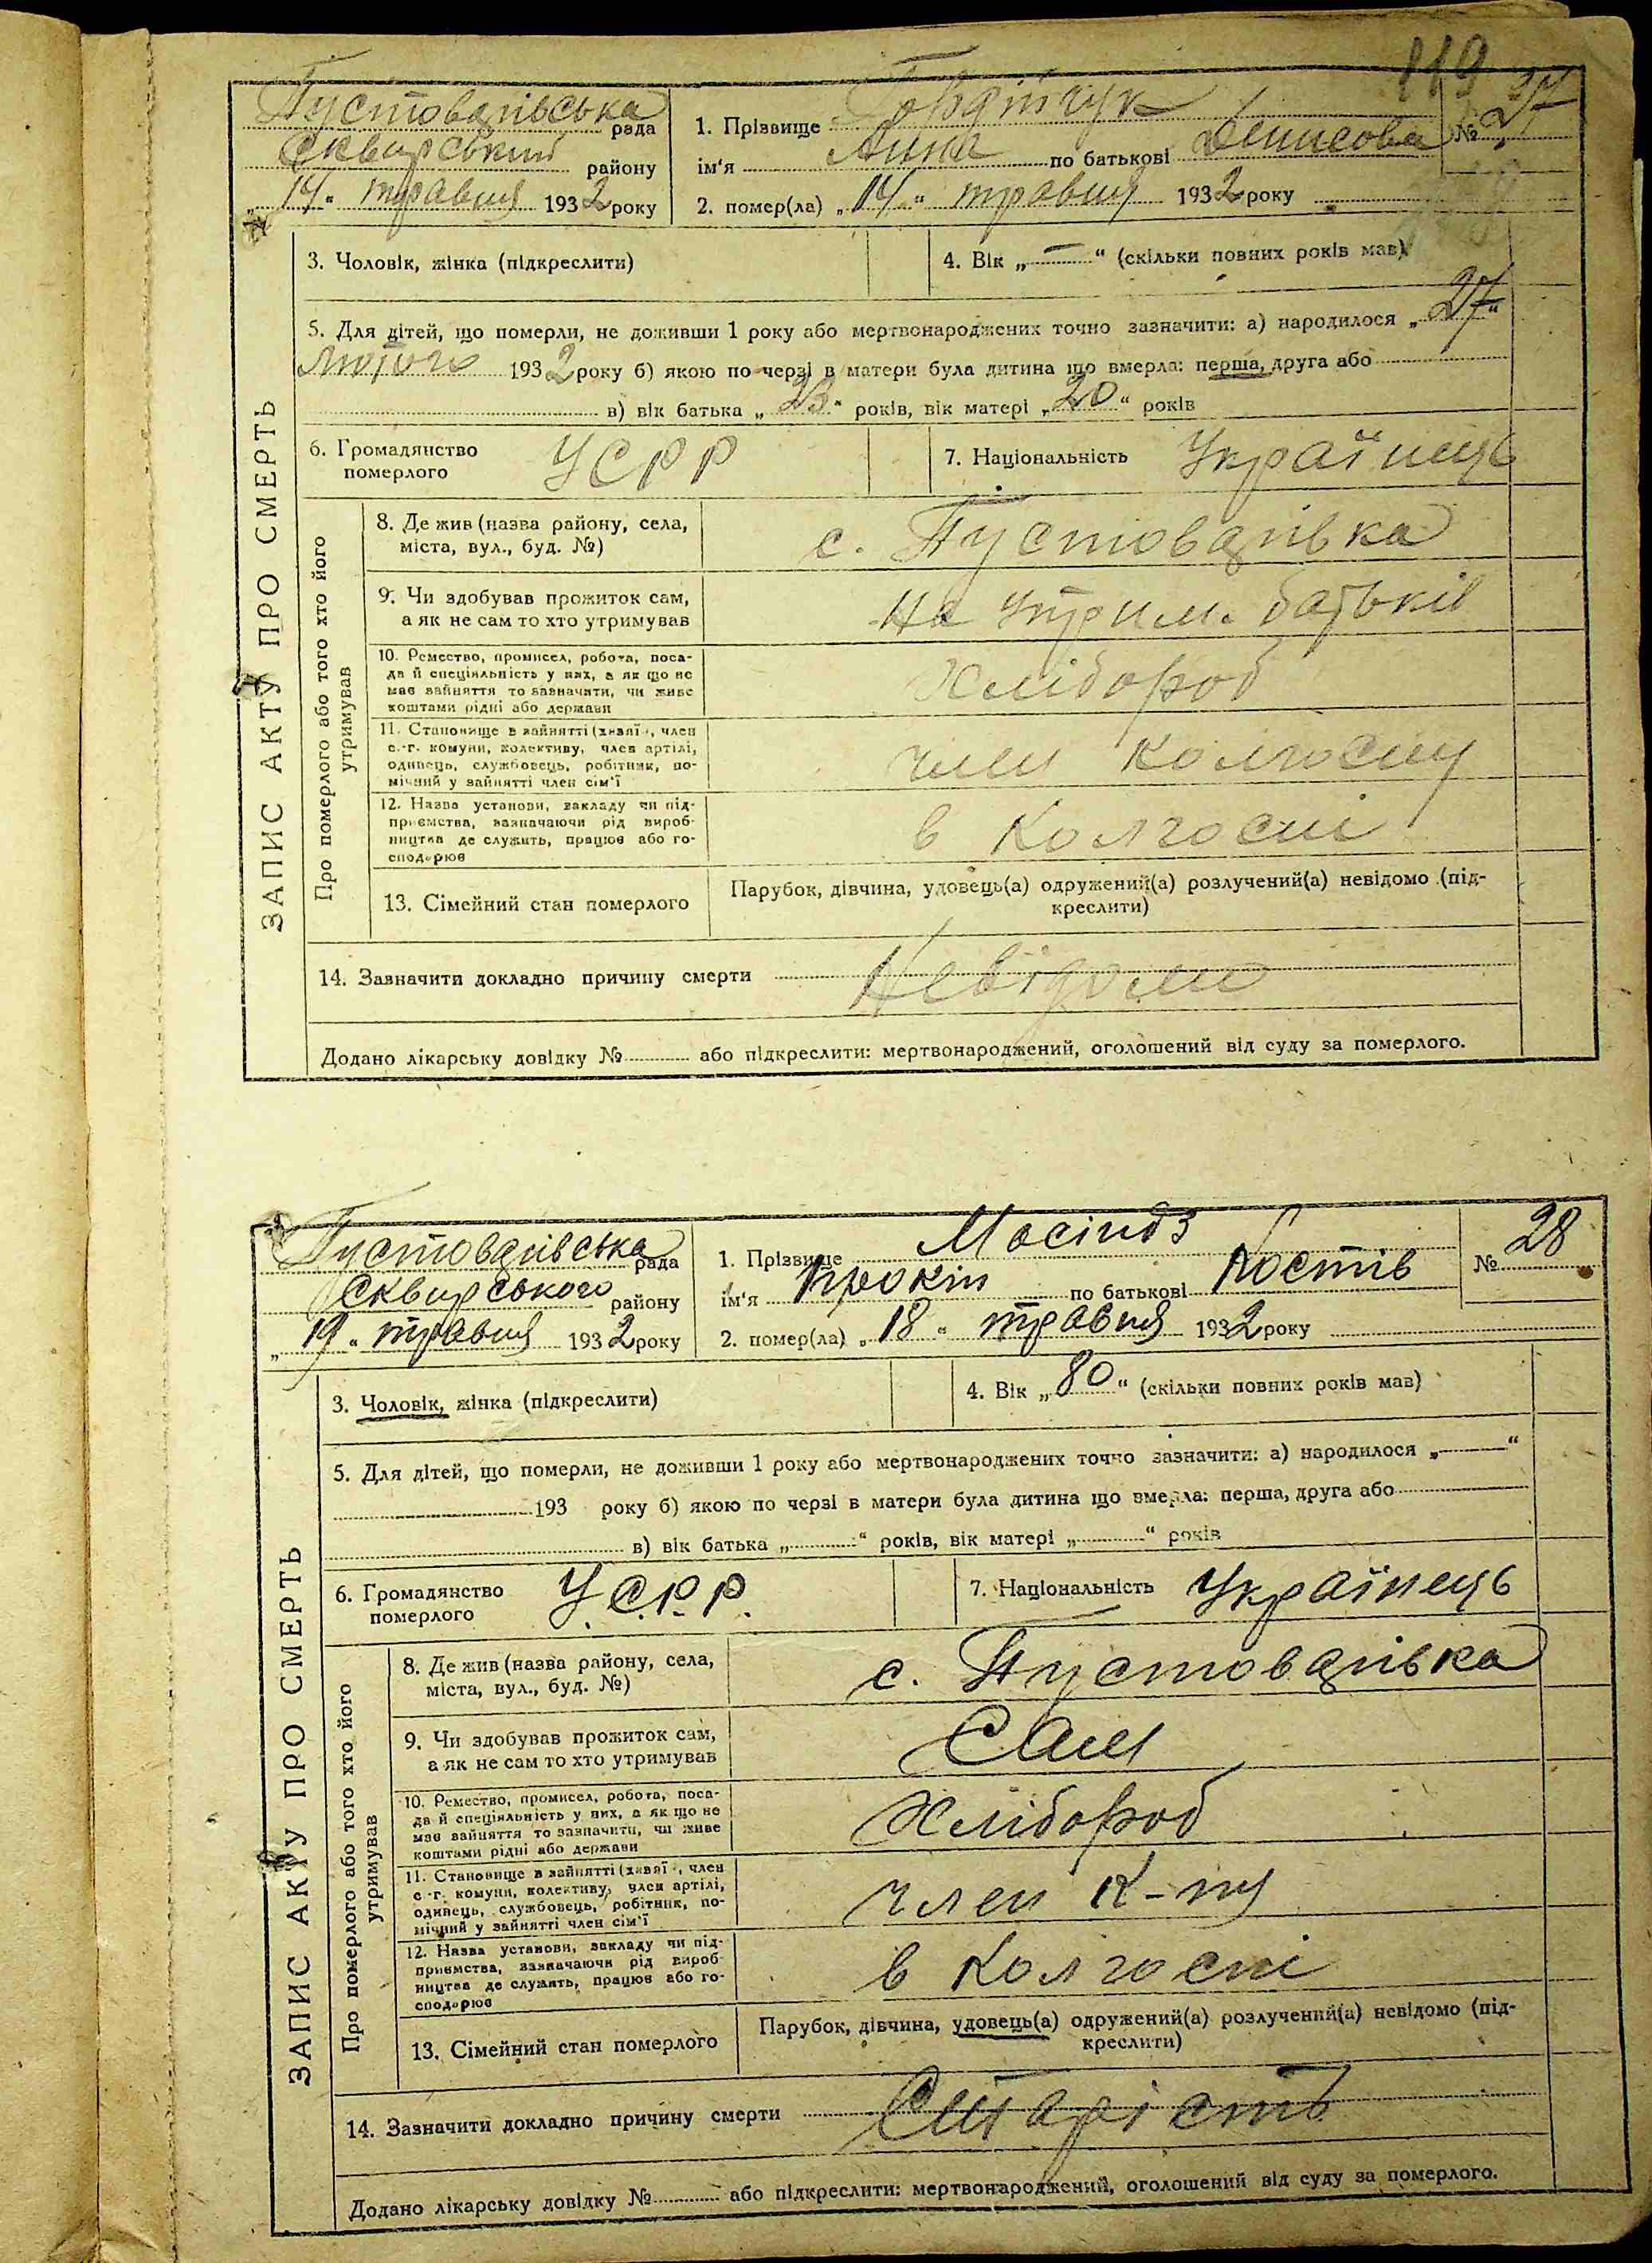 119
Пустоварівська рада
Сквирський району
„14“ травня 1932 року
1. Прізвище Гордійчук
ім'я Анна по батькові Денисова
№ 27
2. помер(ла) „14“ травня 1932 року
3. Чоловік, жінка (підкреслити)
4. Вік „—“ (скільки повних років мав)
5. Для дітей, що померли, не доживши 1 року або мертвонароджених точно зазначити: а) народилося „27“
лютого 1932 року б) якою по черзі в матери була дитина що вмерла: перша, друга або
в) вік батька „23“ років, вік матері „20“ років
6. Громадянство
померлого
УСРР
7. Національність Українець
ЗАПИС АКТУ ПРО СМЕРТЬ
Про померлого або того хто його
утримував
8. Де жив (назва району, села,
міста, вул., буд. №)
с. Пустоварівка
9. Чи здобував прожиток сам,
а як не сам то хто утримував
на утрим. батьків
10. Ремество, промисел, робота, поса-
да й спеціяльність у них, а як що не
має зайняття то зазначити, чи живе
коштами рідні або держави
Хлібороб
11. Становище в зайнятті (хазяї, член
с.-г. комуни, колективу, член артілі,
одинець, службовець, робітник, по-
мічний у зайнятті член сім'ї
член колгоспу
12. Назва установи, закладу чи під-
приємства, зазначаючи рід вироб-
ництва де служить, працює або го-
сподарює
в Колгоспі
13. Сімейний стан померлого
Парубок, дівчина, удовець(а) одружений(а) розлучений(а) невідомо (під-
креслити)
14. Зазначити докладно причину смерти Невідомо
Додано лікарську довідку № або підкреслити: мертвонароджений, оголошений від суду за померлого.
Пустоварівська рада
Сквирського району
„19“ травня 1932 року
1. Прізвище
ім'я Прокіп по батькові Костів
№ 28
2. помер(ла) „18“ травня 1932 року
3. Чоловік, жінка (підкреслити)
4. Вік „80“ (скільки повних років мав)
5. Для дітей, що померли, не доживши 1 року або мертвонароджених точно зазначити: а) народилося „ “
193 року б) якою по черзі в матери була дитина що вмерла: перша, друга або
в) вік батька „ “ років, вік матері „ “ років
6. Громадянство
померлого
У.С.Р.Р.
7. Національність Українець
ЗАПИС АКТУ ПРО СМЕРТЬ
Про померлого або того хто його
утримував
8. Де жив (назва району, села,
міста, вул., буд. №)
с. Пустоварівка
9. Чи здобував прожиток сам,
а як не сам то хто утримував
Сам
10. Ремество, промисел, робота, поса-
да й спеціяльність у них, а як що не
має зайняття то зазначити, чи живе
коштами рідні або держави
Хлібороб
11. Становище в зайнятті (хазяї, член
с.-г. комуни, колективу, член артілі,
одинець, службовець, робітник, по-
мічний у зайнятті член сім'ї
член К-пу
12. Назва установи, закладу чи під-
приємства, зазначаючи рід вироб-
ництва де служить, працює або го-
сподарює
в Колгоспі
13. Сімейний стан померлого
Парубок, дівчина, удовець(а) одружений(а) розлучений(а) невідомо (під-
креслити)
14. Зазначити докладно причину смерти Старість
Додано лікарську довідку № або підкреслити: мертвонароджений, оголошений від суду за померлого.